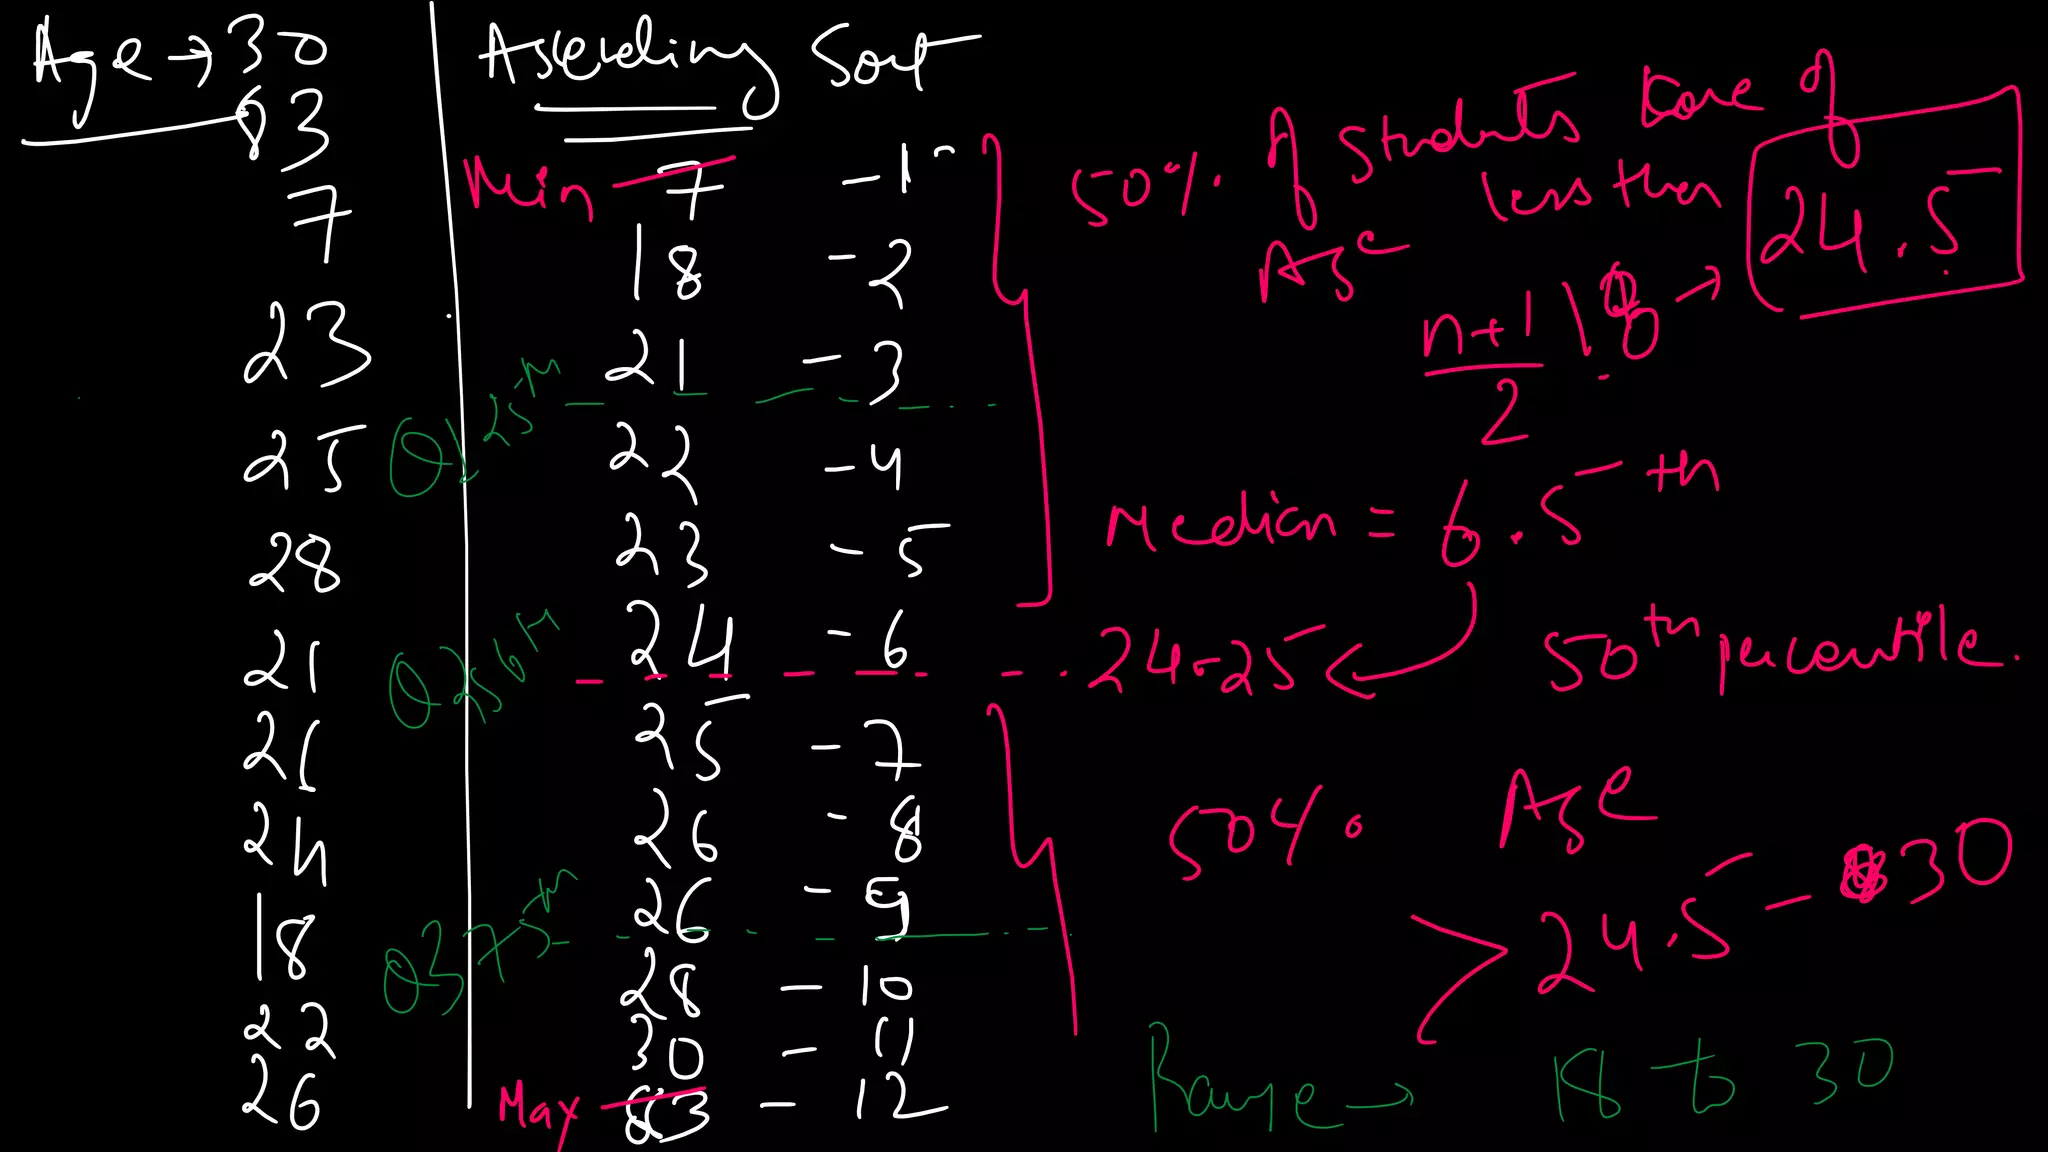 Age → 30
83
7
23
25
28
21
21
24
18
22
26
Ascending Sort
Min 7 - 1
18 - 2
21 - 3
Q1 25th
22 - 4
23 - 5
24 - 6
Q2 50th
25 - 7
26 - 8
26 - 9
Q3 75th
28 - 10
30 - 11
Max 83 - 12
50% of students have
Age less than
24.5
n+1
2
18
Median = 6.5th
24-25
50th percentile.
50% Age
> 24.5 - 30
Range → 18 to 30